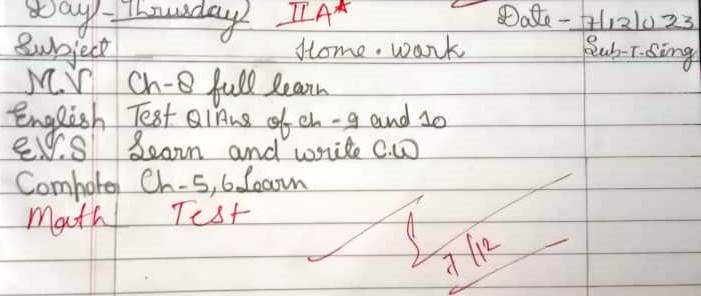 Day - Thrusday II A* Date - 7/12/023
Subject Home.work Sub-T-Sing
M.V Ch-8 full learn
English Test Q/Ans of ch - 9 and 10
E.V.S Learn and write C.W
Comhoter Ch-5,6 Learn
Math Test
7/12